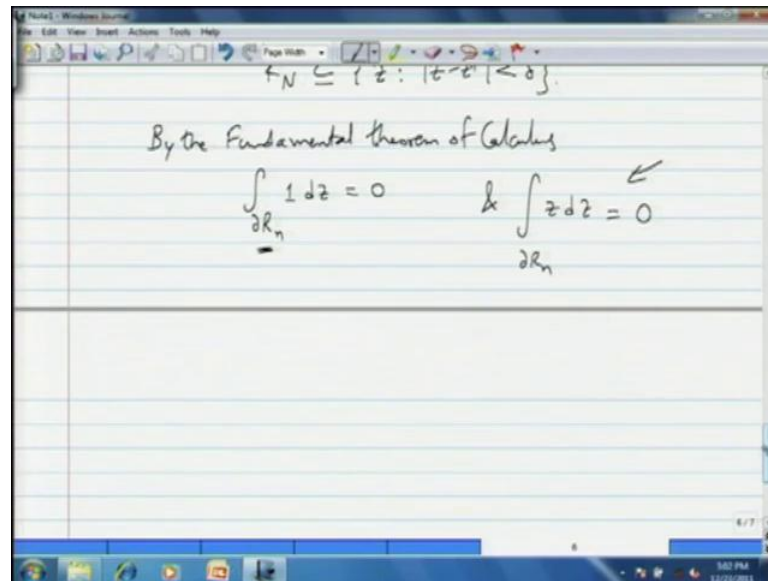 Note1 - Windows Journal
File Edit View Insert Actions Tools Help
Page Width
By the Fundamental theorem of Calculus
∫ 1 dz = 0 & ∫ z dz = 0
∂Rₙ ∂Rₙ
6/7
6
5:02 PM
12/23/2011